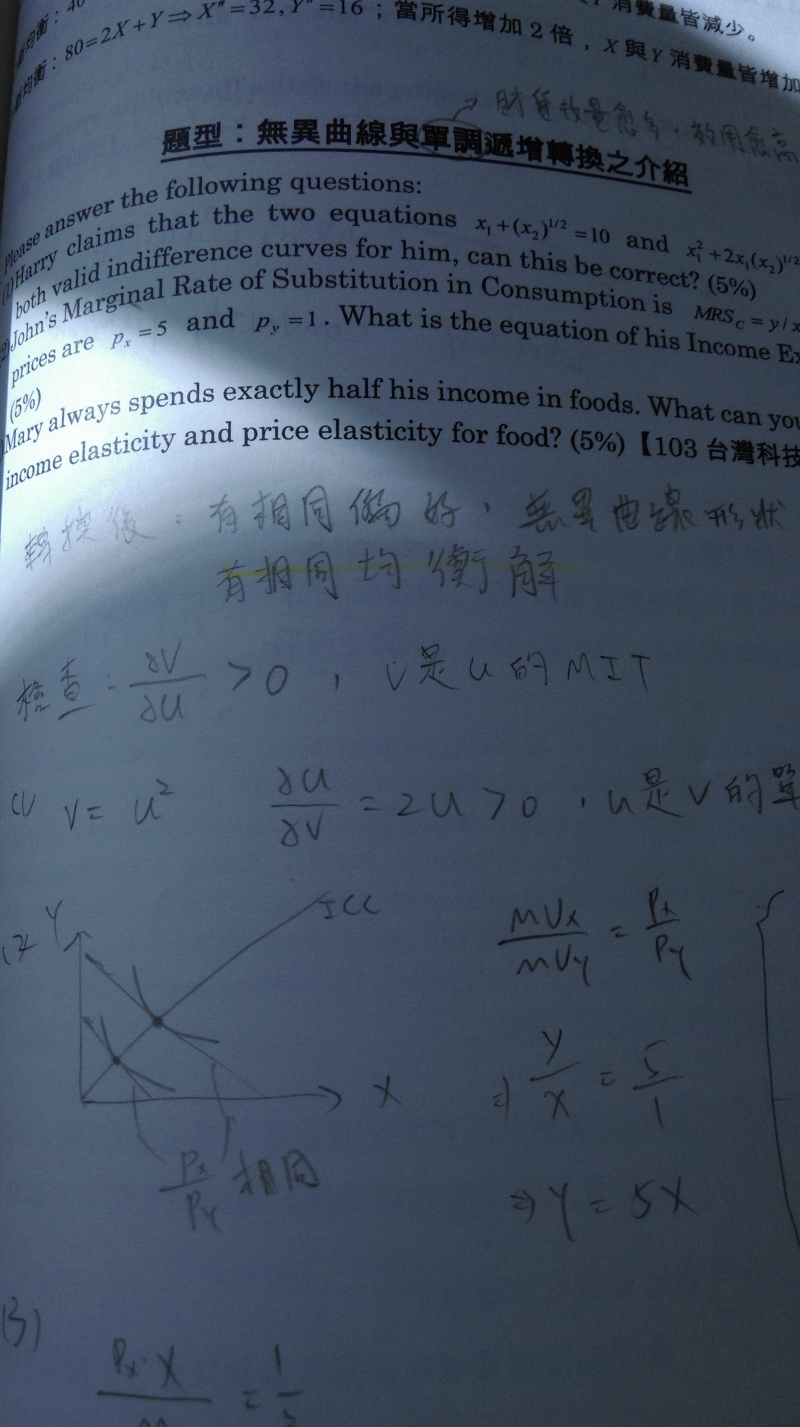 消費量皆減少。
均衡：80=2X+Y⇒X″=32, Y″=16；當所得增加 2 倍，X 與 Y 消費量皆增加
→ 財貨數量愈多，效用愈高
題型：無異曲線與單調遞增轉換之介紹
Please answer the following questions:
(1)Harry claims that the two equations x₁+(x₂)^{1/2}=10 and x₁²+2x₁(x₂)^{1/2}
both valid indifference curves for him, can this be correct? (5%)
John's Marginal Rate of Substitution in Consumption is MRS_C=y/x
prices are p_x=5 and p_y=1. What is the equation of his Income Ex
(5%)
Mary always spends exactly half his income in foods. What can you
income elasticity and price elasticity for food? (5%)【103 台灣科技
轉換後：有相同偏好，無異曲線形狀
有相同均衡解
檢查：∂V/∂U >0，V是U的MIT
(1) V=U² ∂U/∂V =2U>0，U是V的單
(2) Y ICC MUx/MUy = Px/Py
⇒ Y/X = 5/1
X
Px/Py 相同
⇒ Y=5X
(3)
Px·X/m = 1/2